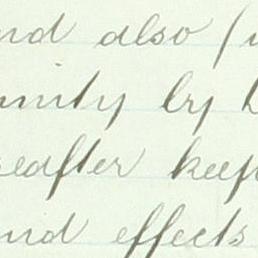 nd also (
unity by
eafter keep
nd effects